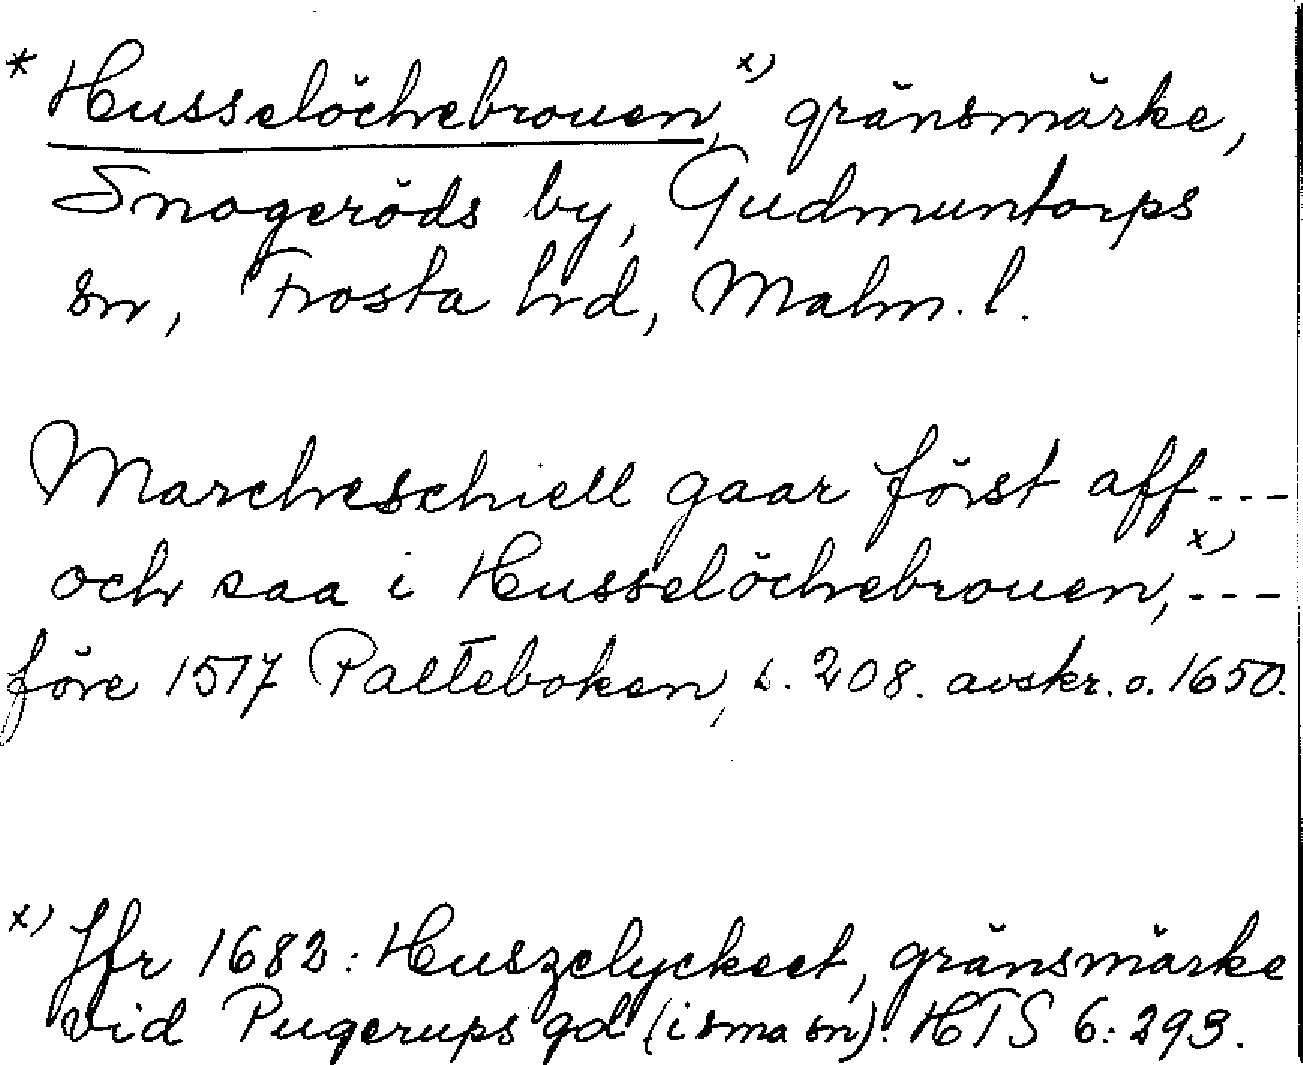 * Husselöchebrouen,ˣ⁾ gränsmärke,
Snogeröds by, Gudmuntorps
sn, Frosta hrd, Malm. l.
Marcheschiell gaar först aff---
och saa i Husselöchebrouen,ˣ⁾---
före 1517 Palteboken, s. 208. avskr. o. 1650.
ˣ⁾ Jfr 1682: Huszelyckeet, gränsmärke
vid Pugerups gd (i sma sn). HTS 6: 293.